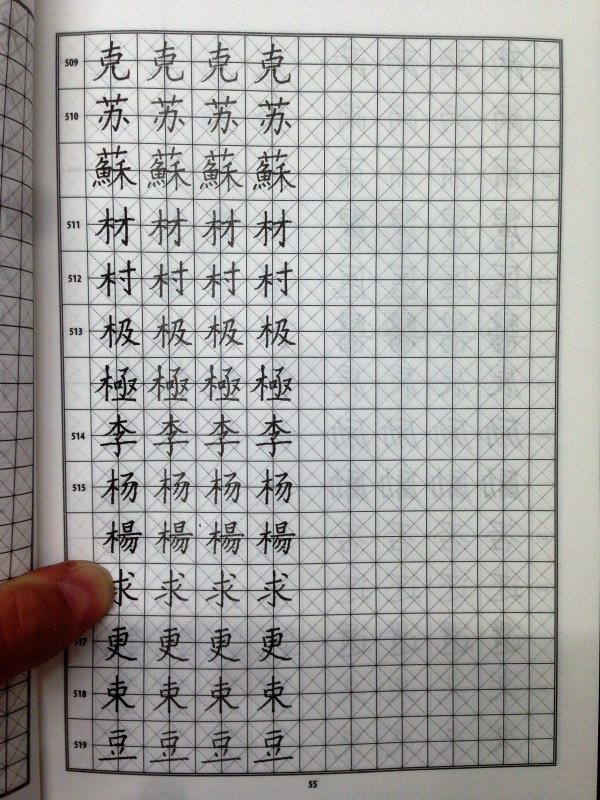 509 克 克 克 克
510 苏 苏 苏 苏
蘇 蘇 蘇 蘇
511 材 材 材 材
512 村 村 村 村
513 极 极 极 极
極 極 極 極
514 李 李 李 李
515 杨 杨 杨 杨
楊 楊 楊 楊
求 求 求 求
517 更 更 更 更
518 束 束 束 束
519 豆 豆 豆 豆
55